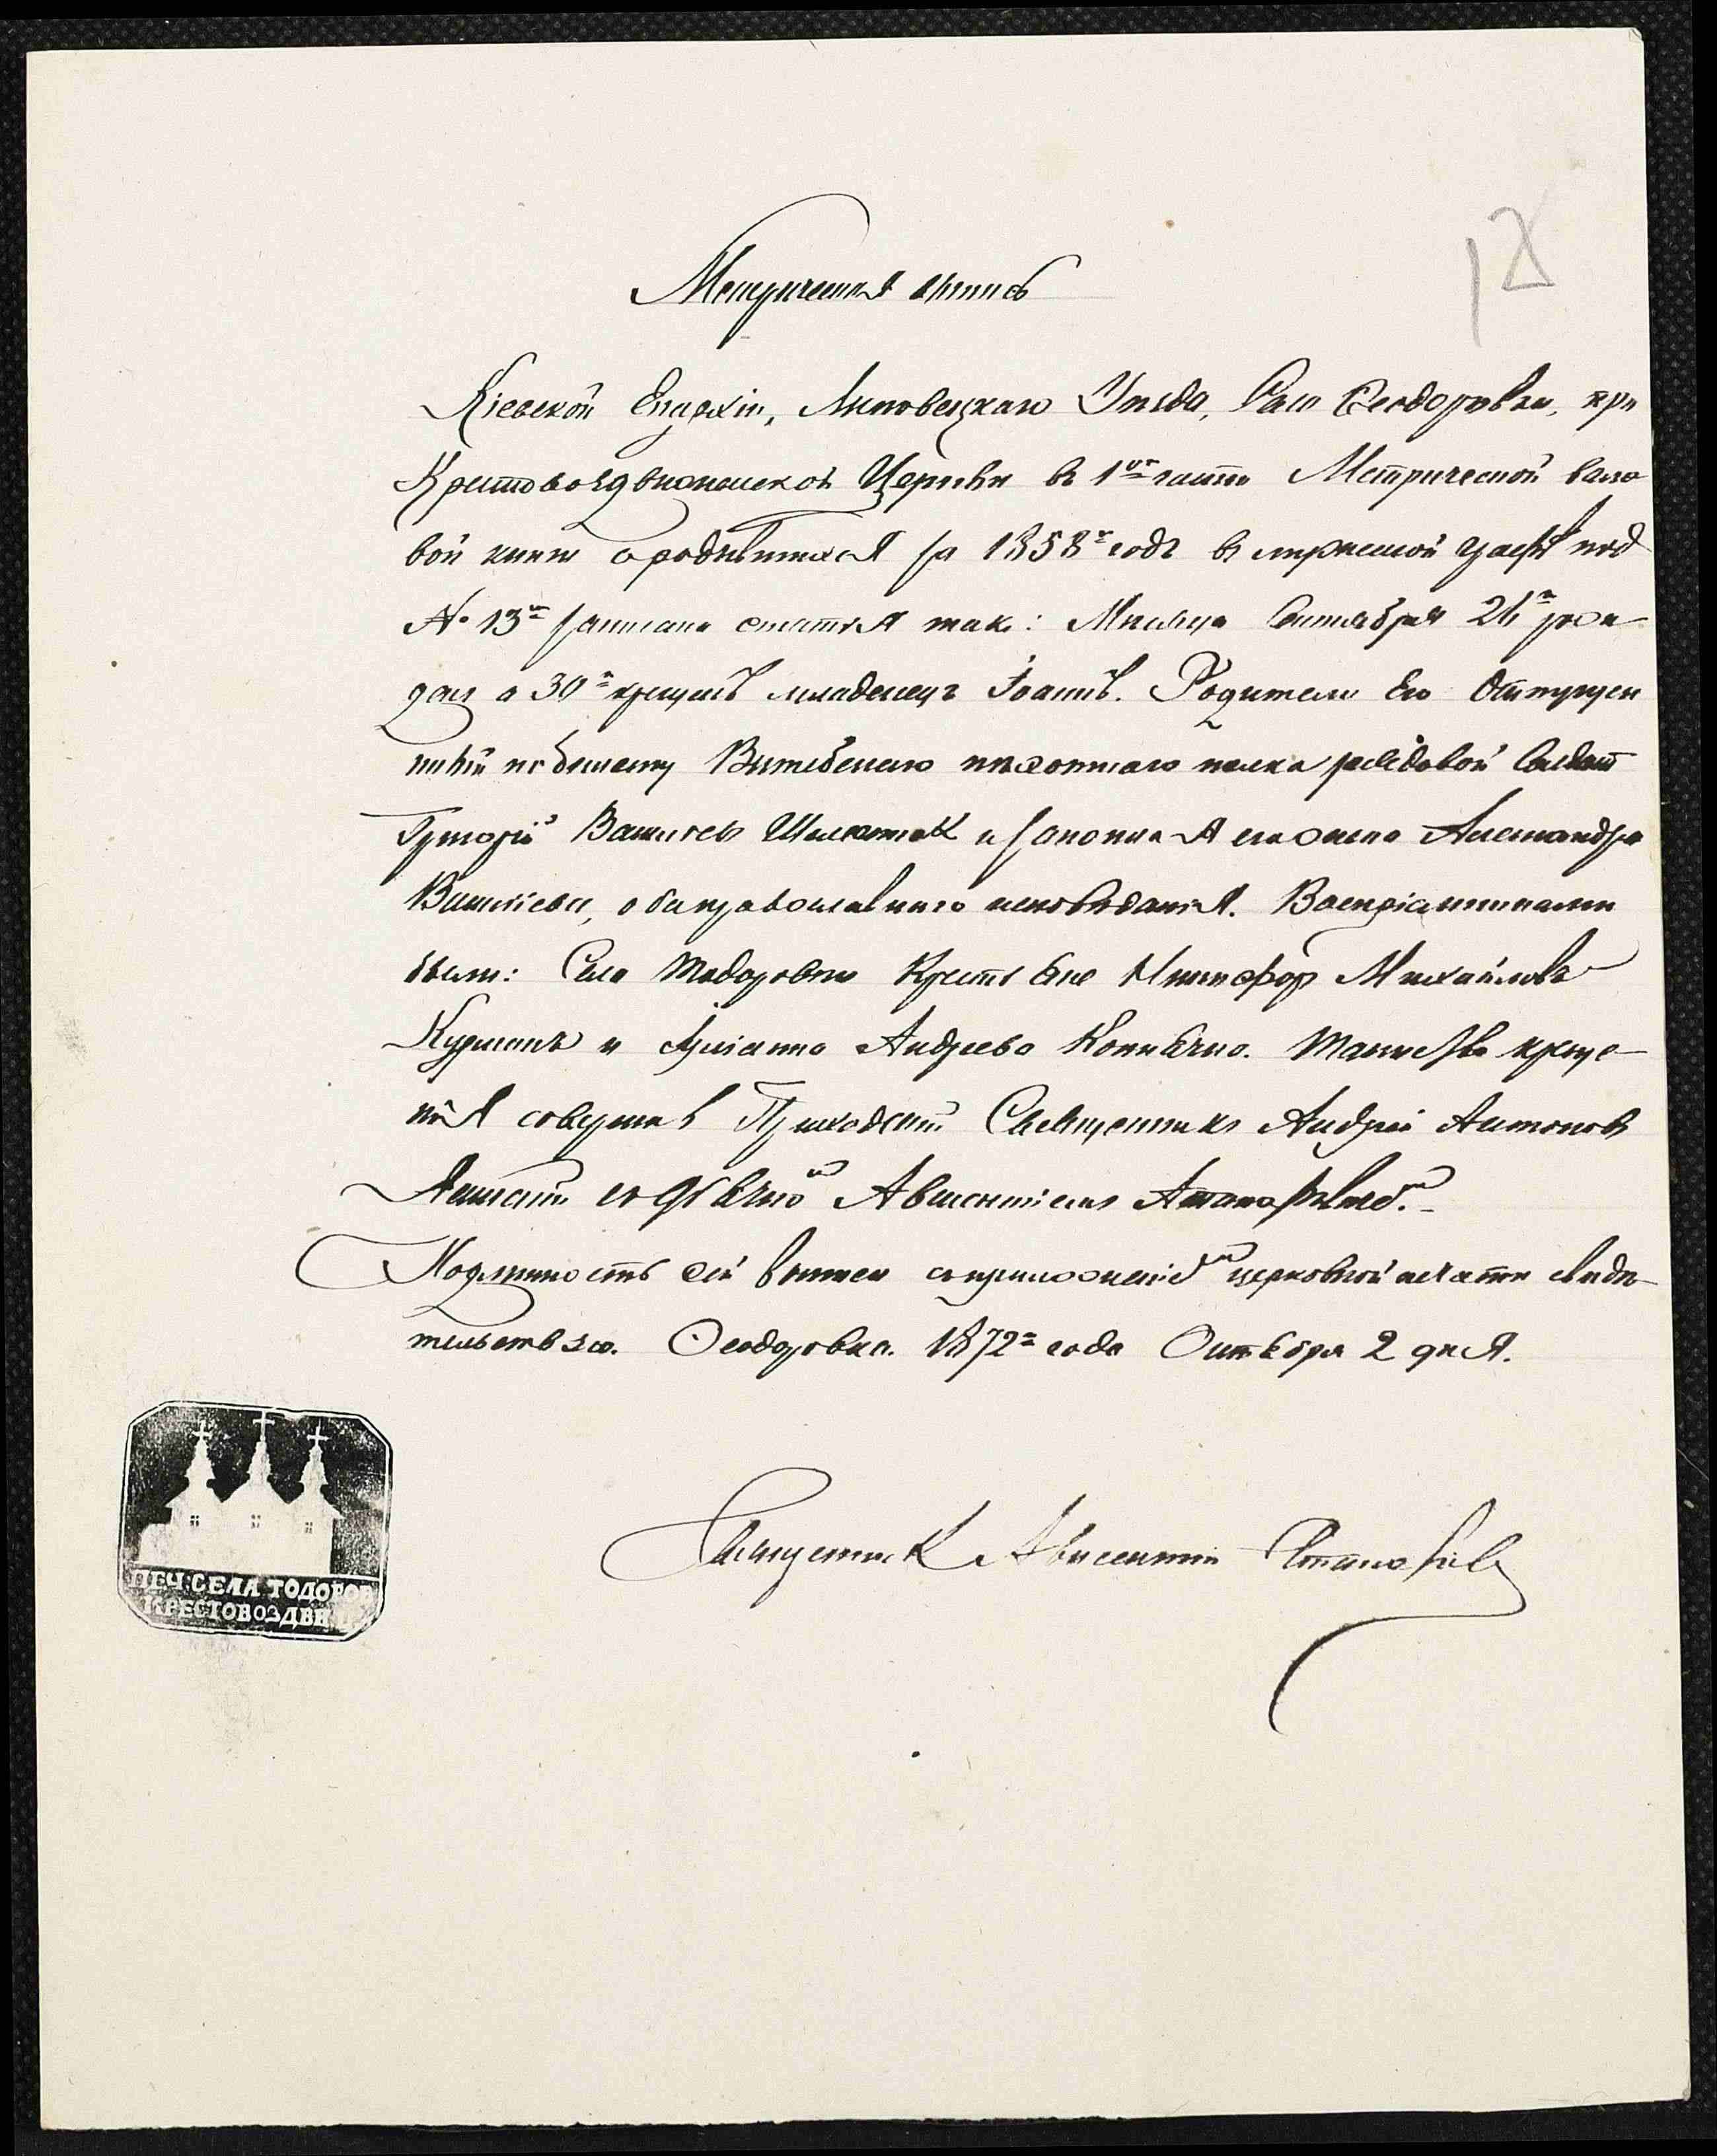 12
Метрическая выпись
Кіевской Епархіи, Липовецкаго Уѣзда, Села Ѳеодоровки, при
Крестовоздвиженской Церкви въ 1ой части Метрической вало
вой книги о родившихся за 1858й годъ въ мужеской графѣ под
№ 13м записана статія так: Мѣсяца Сентября 26го рож
ден а 30го крещенъ младенецъ Іоаннъ. Родители Его Отпущен
ный по билету Витебскаго пѣхотнаго полка рядовой Солдат
Григорій Васильев и законная его жена Александра
Василіева, оба православнаго исповѣданія. Воспріемниками
были: Села Тодоровки Крестьяне Никифор Михайловъ
и Андреева Таинство креще
нія совершив Приходскій Священникъ Андрей Антонов
съ дьячком Авксентіем
Подлинность сей выписи съ приложеніем церковной печати свидѣ
тельствую. Ѳеодоровка. 1872го года Октября 2 дня.
ПЕЧ: СЕЛА ТОДОРОВ
КРЕСТОВОЗДВИ
Священник Авксентий